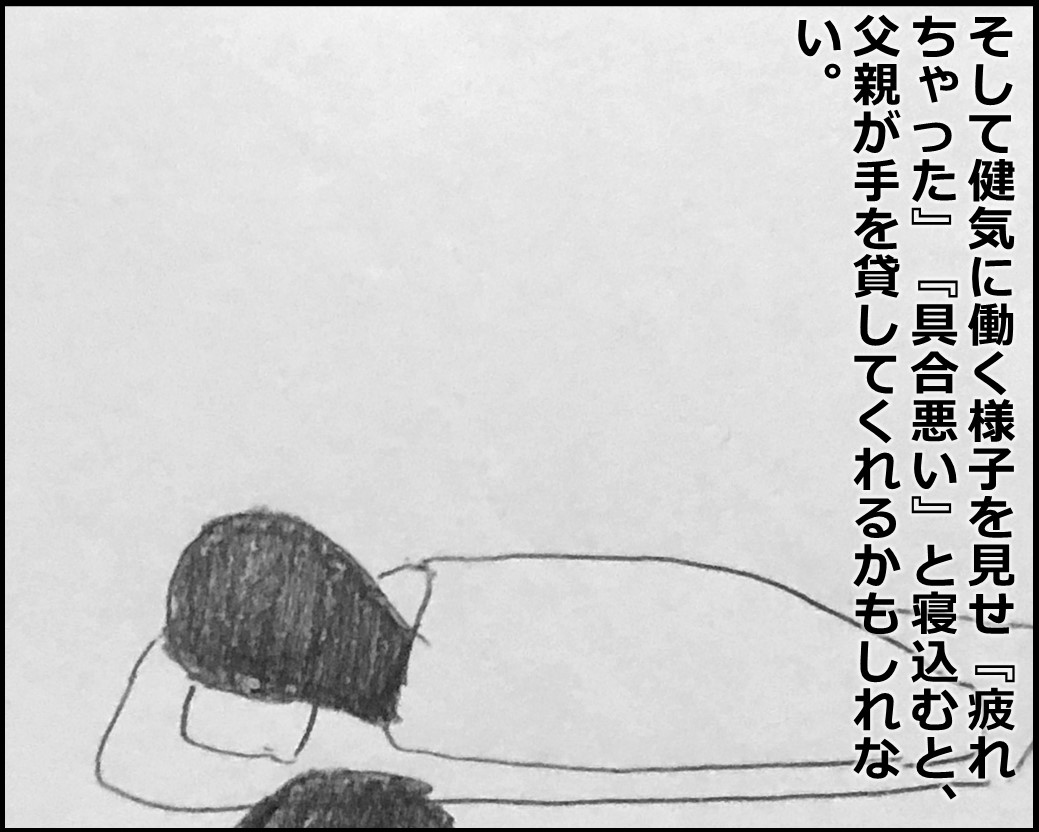 そして健気に働く様子を見せ『疲れ
ちゃった』『具合悪い』と寝込むと、
父親が手を貸してくれるかもしれな
い。